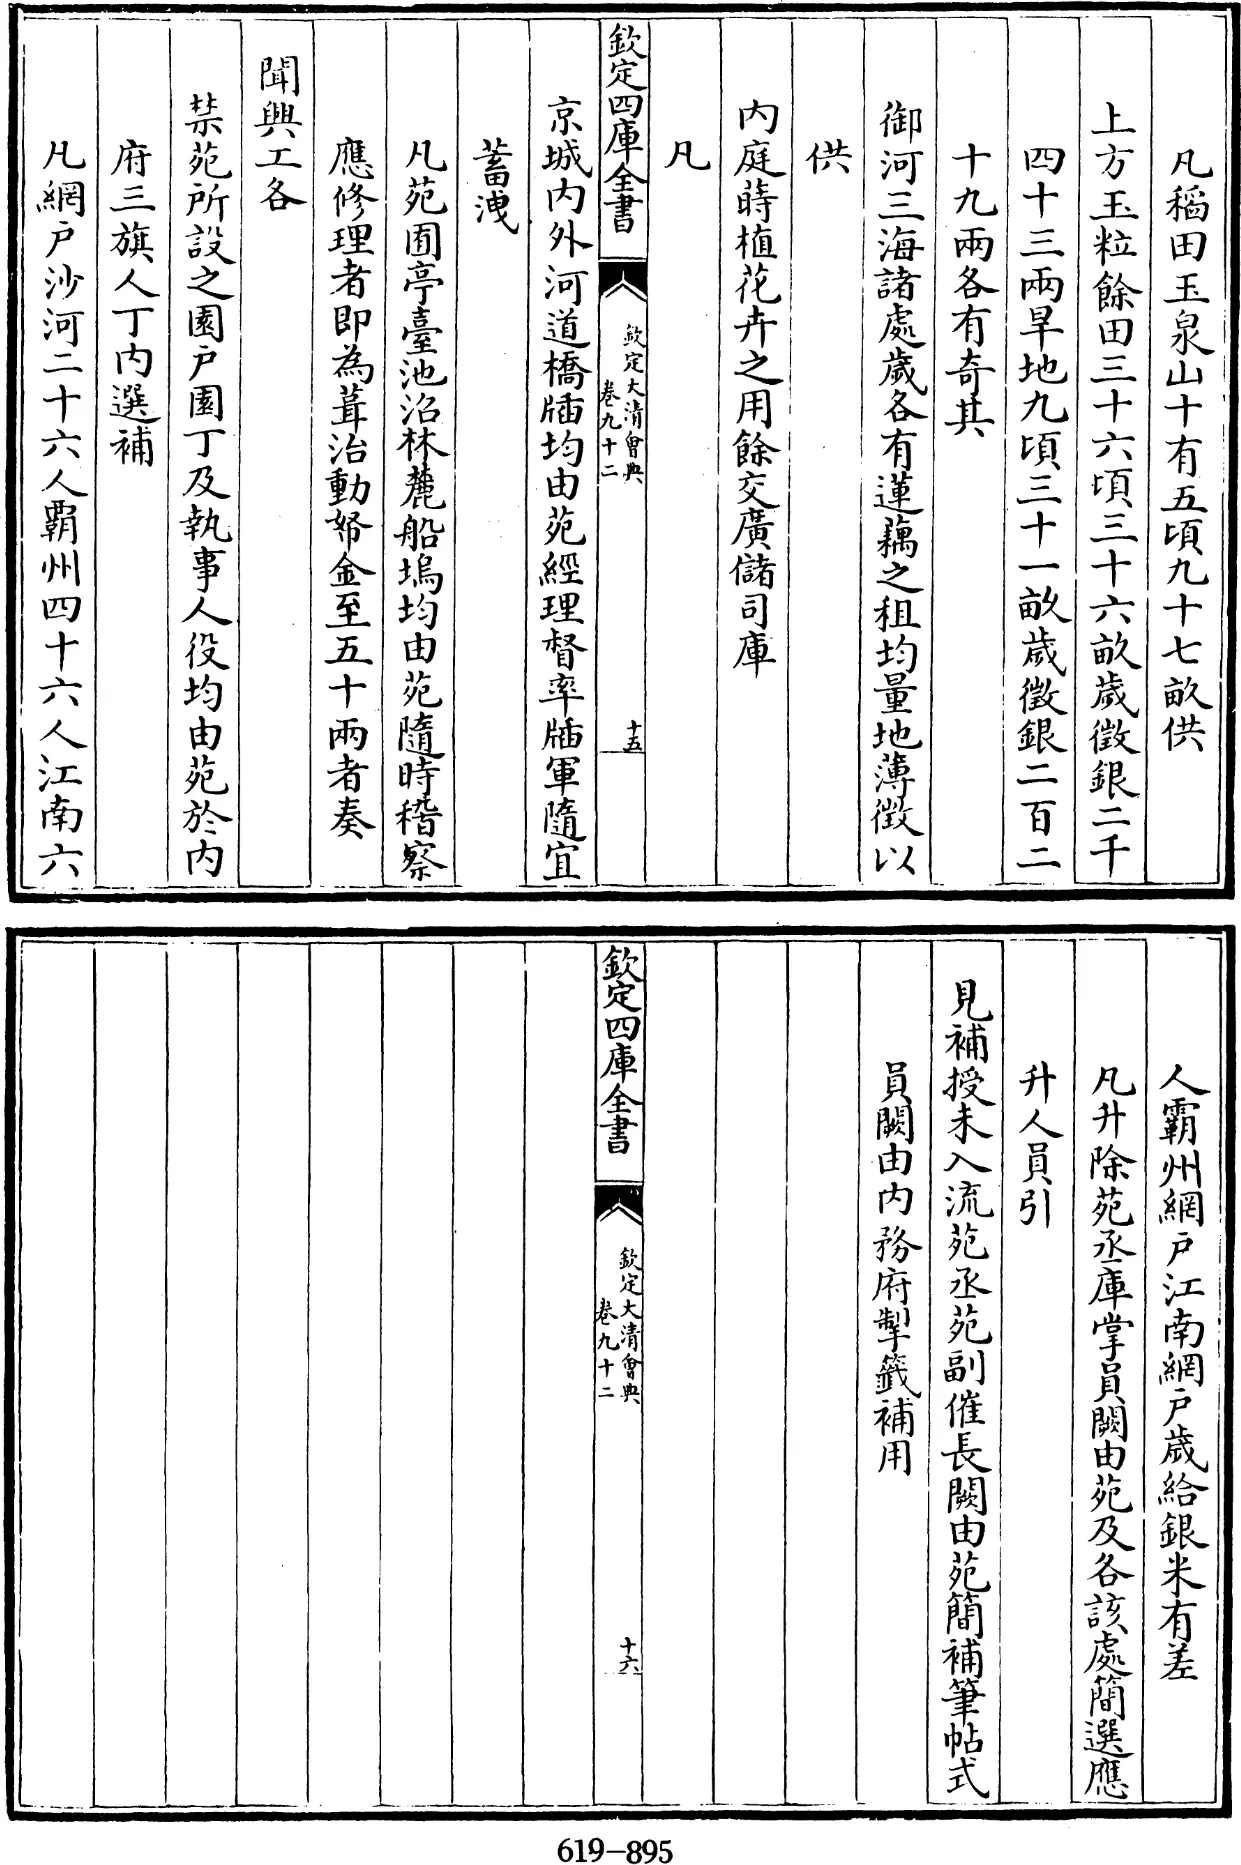 凡稻田玉泉山十有五頃九十七畝供
上方玉粒餘田三十六頃三十六畝歲徵銀二千
四十三兩旱地九頃三十一畝歲徵銀二百二
十九兩各有奇其
御河三海諸處歲各有蓮藕之租均量地薄徵以
供
內庭蒔植花卉之用餘交廣儲司庫
凡
欽定四庫全書
欽定大清會典
卷九十二
十五
京城内外河道橋牐均由苑經理督率牐軍隨宜
蓄洩
凡苑囿亭臺池沼林麓船塢均由苑隨時稽察
應修理者即為葺治動帑金至五十兩者奏
聞興工各
禁苑所設之園户園丁及執事人役均由苑於内
府三旗人丁内選補
凡網户沙河二十六人霸州四十六人江南六
人霸州網户江南網户歲給銀米有差
凡升除苑丞庫掌員闕由苑及各該處簡選應
升人員引
見補授未入流苑丞苑副催長闕由苑簡補筆帖式
員闕由内務府掣籤補用
欽定四庫全書
欽定大清會典
卷九十二
十六
619-895